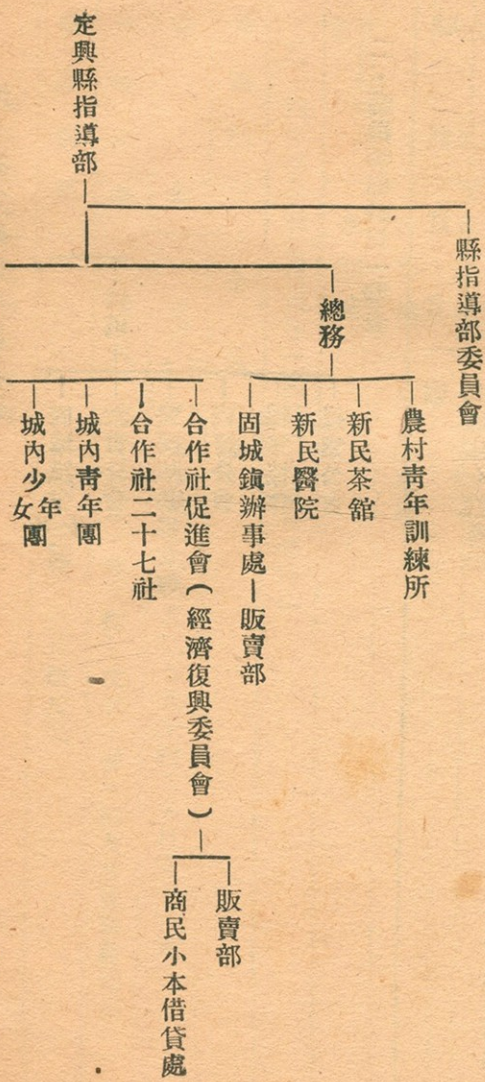 縣指導部委員會
定興縣指導部
總務
農村靑年訓練所
新民茶舘
新民醫院
固城鎭辦事處—販賣部
合作社促進會(經濟復興委員會)
販賣部
商民小本借貸處
合作社二十七社
城內靑年團
城內少年女團